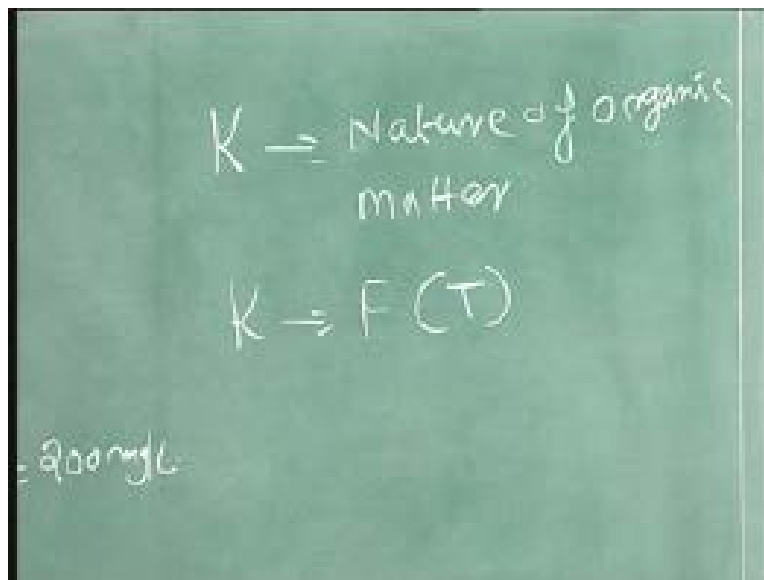 K → Nature of organic
matter
K → F (T)
= 200 mg/L